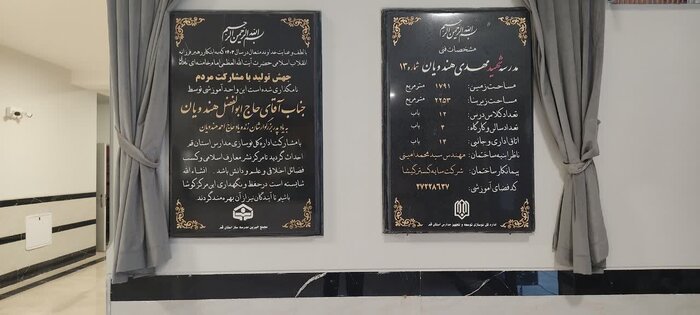 بسم الله الرحمن الرحیم
مشخصات فنی
مدرسه شهید مهدی هندویان شماره ۱۳
مساحت زمین: ۱۷۹۱ مترمربع
مساحت زیربنا: ۲۲۵۳ مترمربع
تعداد کلاس درس: ۱۲ باب
تعداد سالن و کارگاه: ۴ باب
اتاق اداری و جانبی: ۱۳ باب
ناظر ابنیه ساختمان: مهندس سید محمد امینی
پیمانکار ساختمان: شرکت سایه گستر کیشا
کد فضای آموزشی: ۲۷۲۲۸۶۳۷
اداره کل نوسازی توسعه و تجهیز مدارس استان قم
بسم الله الرحمن الرحیم
با لطف و عنایت خداوند متعال در سال ۱۴۰۴ که به ابتکار رهبر فرزانه
انقلاب اسلامی حضرت آیت الله العظمی امام خامنه ای
جهش تولید با مشارکت مردم
نامگذاری شده است این واحد آموزشی توسط
جناب آقای حاج ابوالفضل هندویان
به یاد پدر بزرگوارشان زنده یاد حاج احمد هندویان
با مشارکت اداره کل نوسازی مدارس استان قم
احداث گردید تا مرکز نشر معارف اسلامی و کسب
فضائل اخلاقی و علم و دانش باشد. انشاء الله
شایسته است در حفظ و نگهداری این مرکز کوشا
باشیم تا آیندگان نیز از آن بهره مند گردند
مجمع خیرین مدرسه ساز استان قم